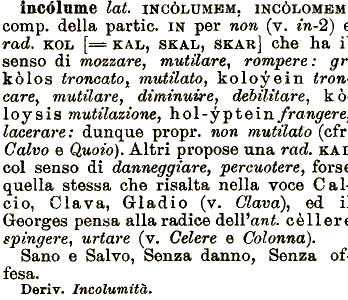 incólume lat. INCÒLUMEM, INCÒLOMEM
comp. della partic. IN per non (v. in-2) e
rad. KOL [= KAL, SKAL, SKAR] che ha i
senso di mozzare, mutilare, rompere: gr
kòlos troncato, mutilato, koloỳein tron-
care, mutilare, diminuire, debilitare, kò-
loysis mutilazione, hol-ỳptein frangere,
lacerare: dunque propr. non mutilato (cfr
Calvo e Quoio). Altri propose una rad. KAL
col senso di danneggiare, percuotere, forse
quella stessa che risalta nella voce Cal-
cio, Clava, Gladio (v. Clava), ed i
Georges pensa alla radice dell'ant. cèllere
spingere, urtare (v. Celere e Colonna).
Sano e Salvo, Senza danno, Senza of-
fesa.
Deriv. Incolumità.